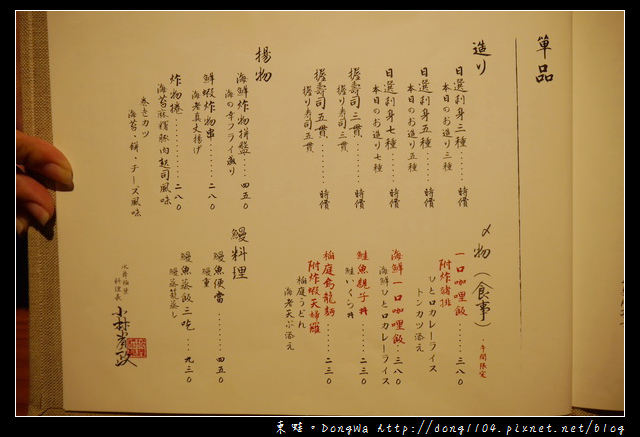 單品
造り
日選刺身三種......時價
本日のお造り三種
日選刺身五種......時價
本日のお造り五種
日選刺身七種......時價
本日のお造り七種
握壽司三貫......時價
握り寿司三貫
握壽司五貫......時價
握り寿司五貫
揚物
海鮮炸物拼盤...四五0
海の幸フライ盛り
鮮蝦炸物串......二八0
海老真丈揚げ
炸物捲......二八0
海苔麻糬豚肉起司風味
巻きカツ
海苔、餅、チーズ風味
〆物(食事)
.午間限定
一口咖哩飯......三八0
附炸豬排
ひと口カレーライス
トンカツ添え
海鮮一口咖哩飯..三八0
海鮮ひと口カレーライス
鮭魚親子丼......二三0
鮭いくら丼
稲庭烏龍麵......二三0
附炸蝦天婦羅
稲庭うどん
海老天ぷ添え
鰻料理
鰻魚便當......四五0
鰻重
鰻魚蒸飯三吃...九三0
鰻蒸籠蒸し
料理長
東蛙。DongWa http://dong1104.pixnet.net/blog